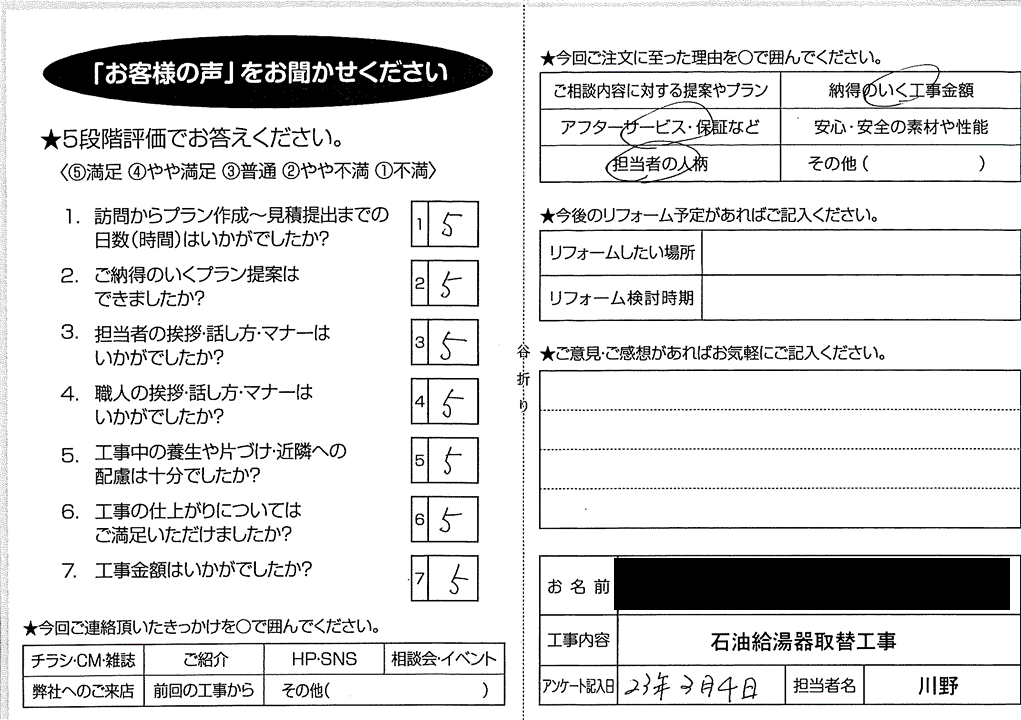 「お客様の声」をお聞かせください
★5段階評価でお答えください。
〈⑤満足 ④やや満足 ③普通 ②やや不満 ①不満〉
1. 訪問からプラン作成～見積提出までの
日数(時間)はいかがでしたか?
1 5
2. ご納得のいくプラン提案は
できましたか?
2 5
3. 担当者の挨拶・話し方・マナーは
いかがでしたか?
3 5
4. 職人の挨拶・話し方・マナーは
いかがでしたか?
4 5
5. 工事中の養生や片づけ・近隣への
配慮は十分でしたか?
5 5
6. 工事の仕上がりについては
ご満足いただけましたか?
6 5
7. 工事金額はいかがでしたか?
7 5
★今回ご連絡頂いたきっかけを○で囲んでください。
チラシ・CM・雑誌 ご紹介 HP・SNS 相談会・イベント
弊社へのご来店 前回の工事から その他( )
谷折り
★今回ご注文に至った理由を○で囲んでください。
ご相談内容に対する提案やプラン 納得のいく工事金額
アフターサービス・保証など 安心・安全の素材や性能
担当者の人柄 その他( )
★今後のリフォーム予定があればご記入ください。
リフォームしたい場所
リフォーム検討時期
★ご意見・ご感想があればお気軽にご記入ください。
お名前
工事内容 石油給湯器取替工事
アンケート記入日 23年3月4日 担当者名 川野